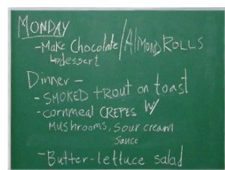 MONDAY
-Make Chocolate/Almond ROLLS
for dessert
Dinner-
-SMOKED trout on toast
-cornmeal CREPES W/
Mushrooms, Sour cream
Sauce
-Butter-lettuce salad